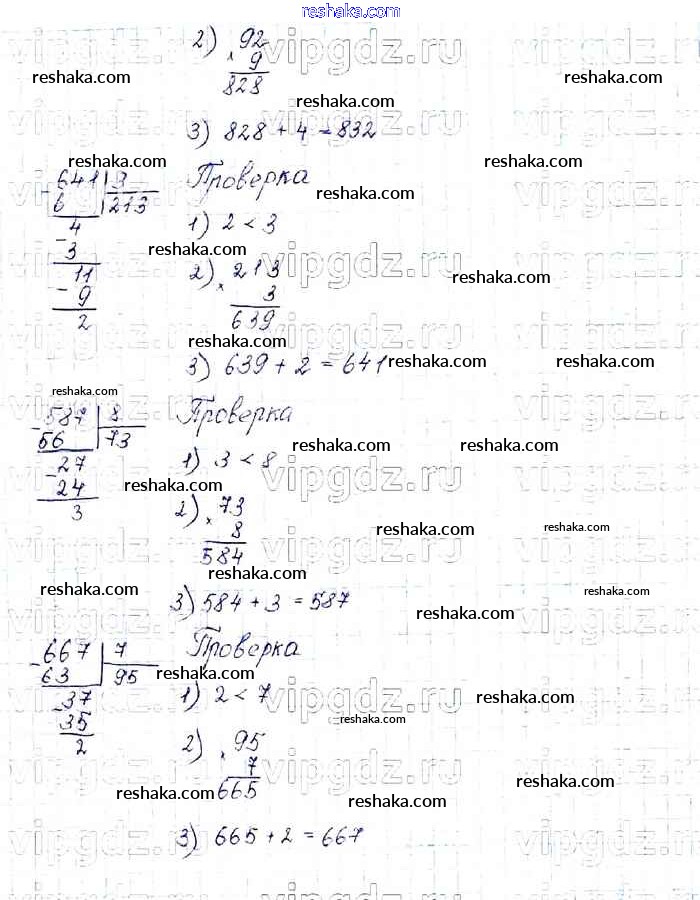 reshaka.com
2) 92
× 9
828
3) 828 + 4 = 832
641 | 3
6 | 213
4
3
11
9
2
Проверка
1) 2 < 3
2) 213
× 3
639
3) 639 + 2 = 641
587 | 8
56 | 73
27
24
3
Проверка
1) 3 < 8
2) 73
× 8
584
3) 584 + 3 = 587
667 | 7
63 | 95
37
35
2
Проверка
1) 2 < 7
2) 95
× 7
665
3) 665 + 2 = 667
vipgdz.ru